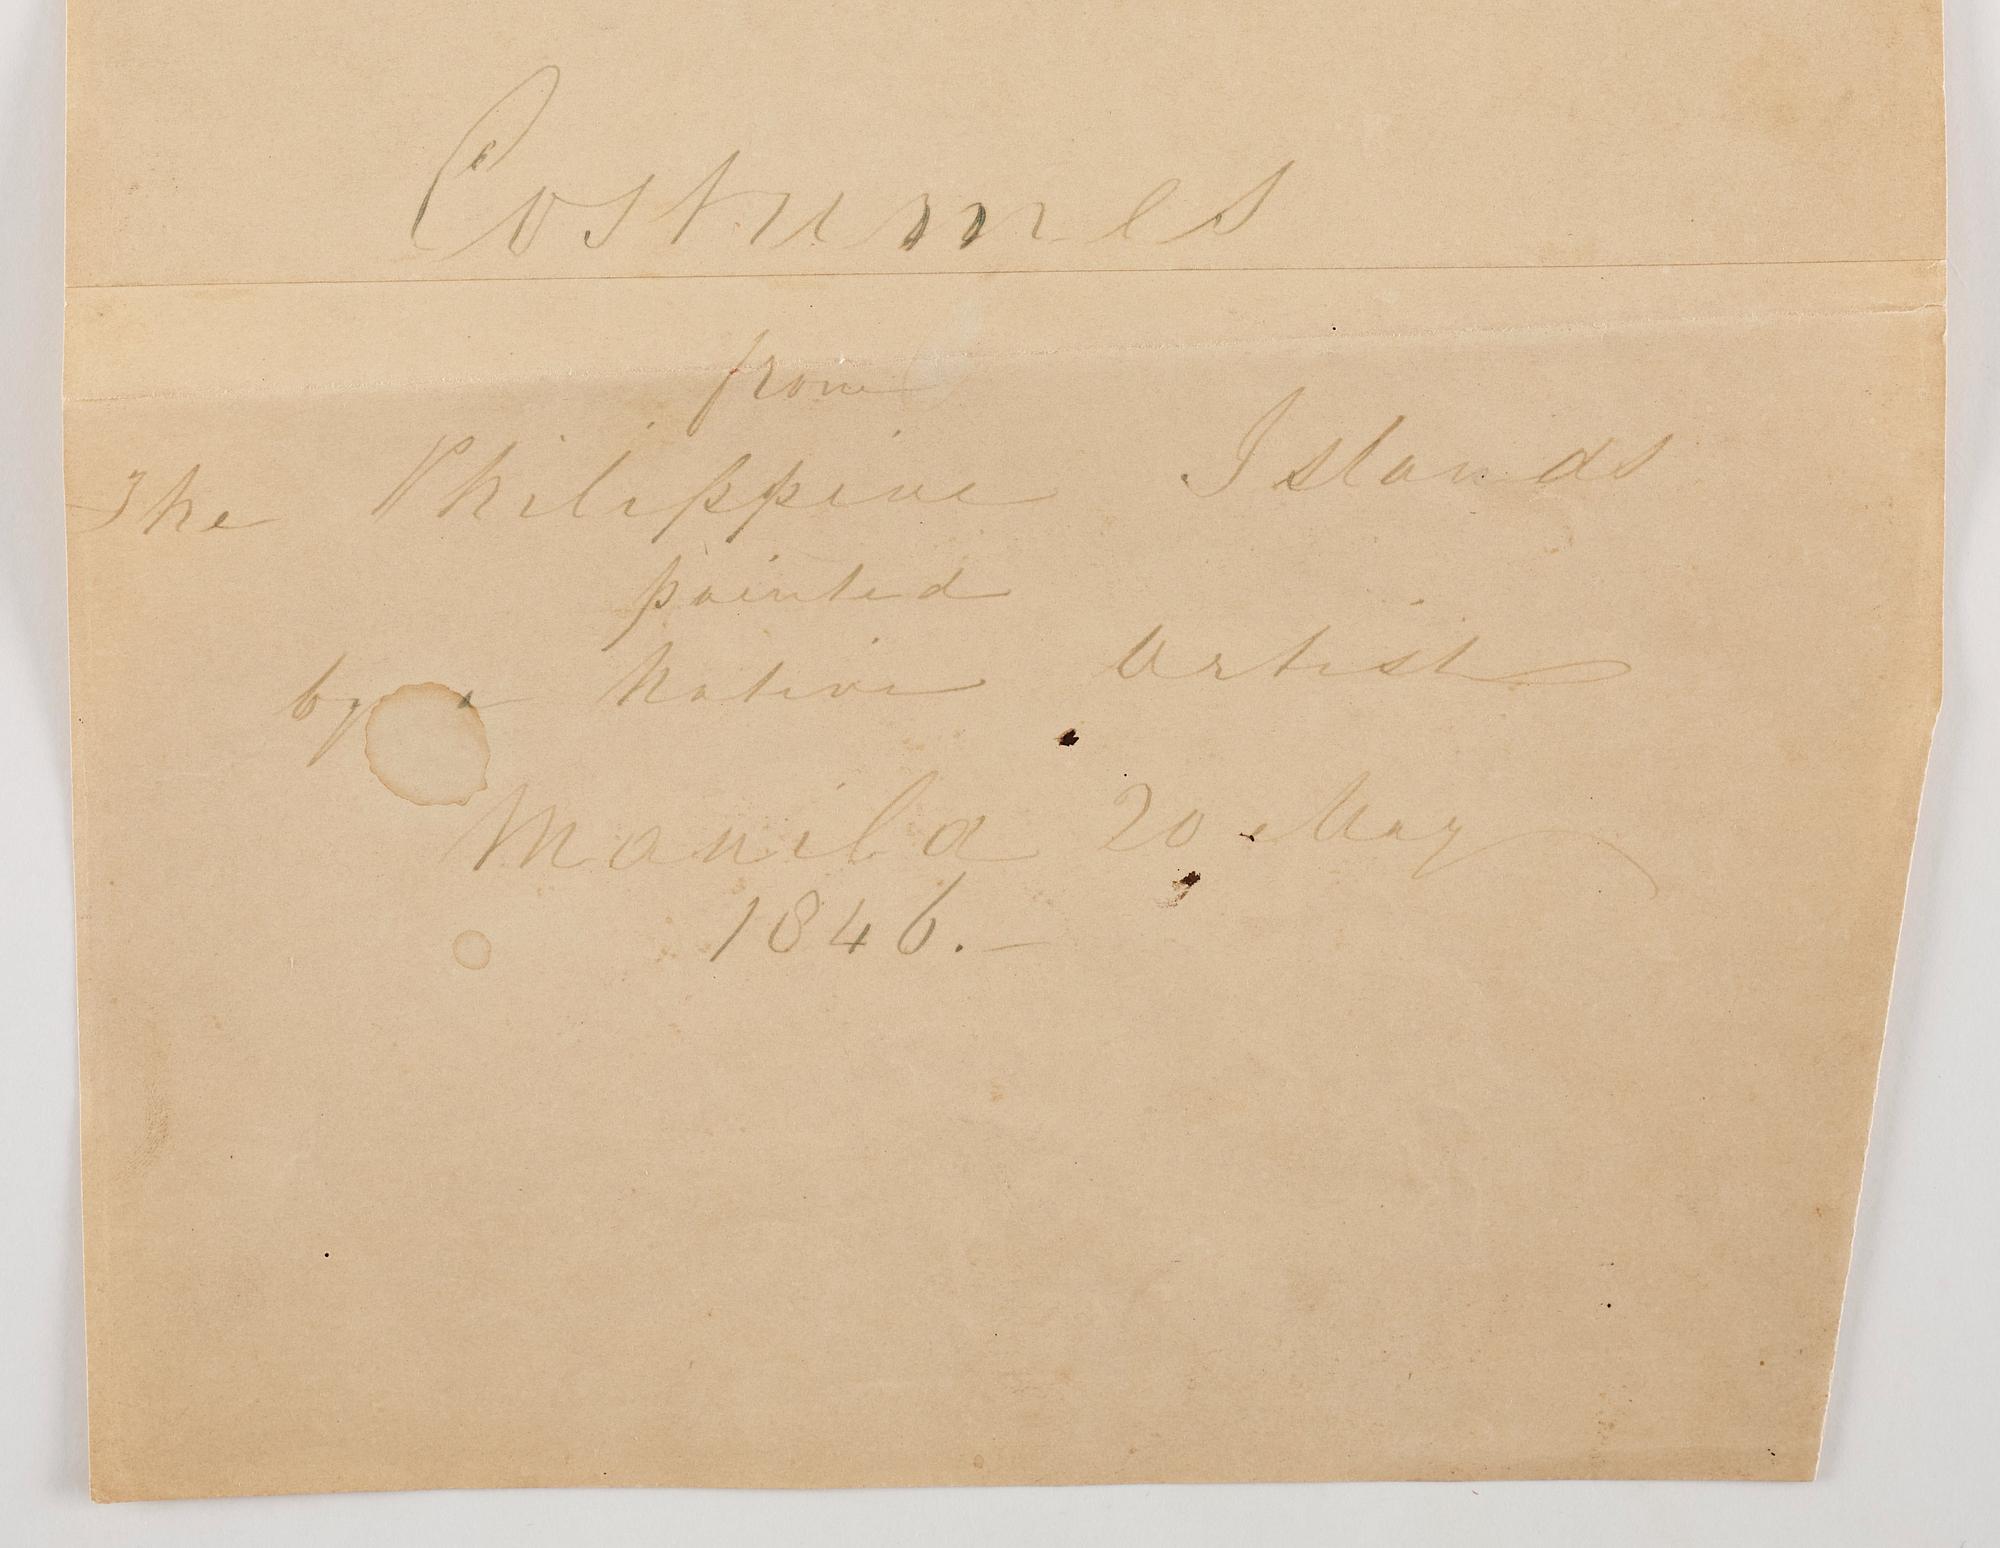 Costumes
from
The Philippine Islands
painted
by a Native Artist
Manila 20 May
1846.—